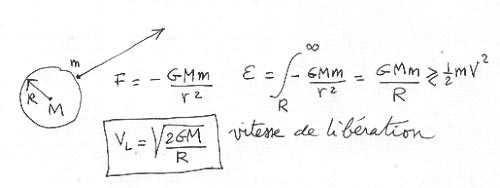 m
R
M
F = - GMm/r² ℰ = ∫_R^∞ - GMm/r² = GMm/R ⩾ ½mV²
V_L = √(2GM/R) vitesse de libération